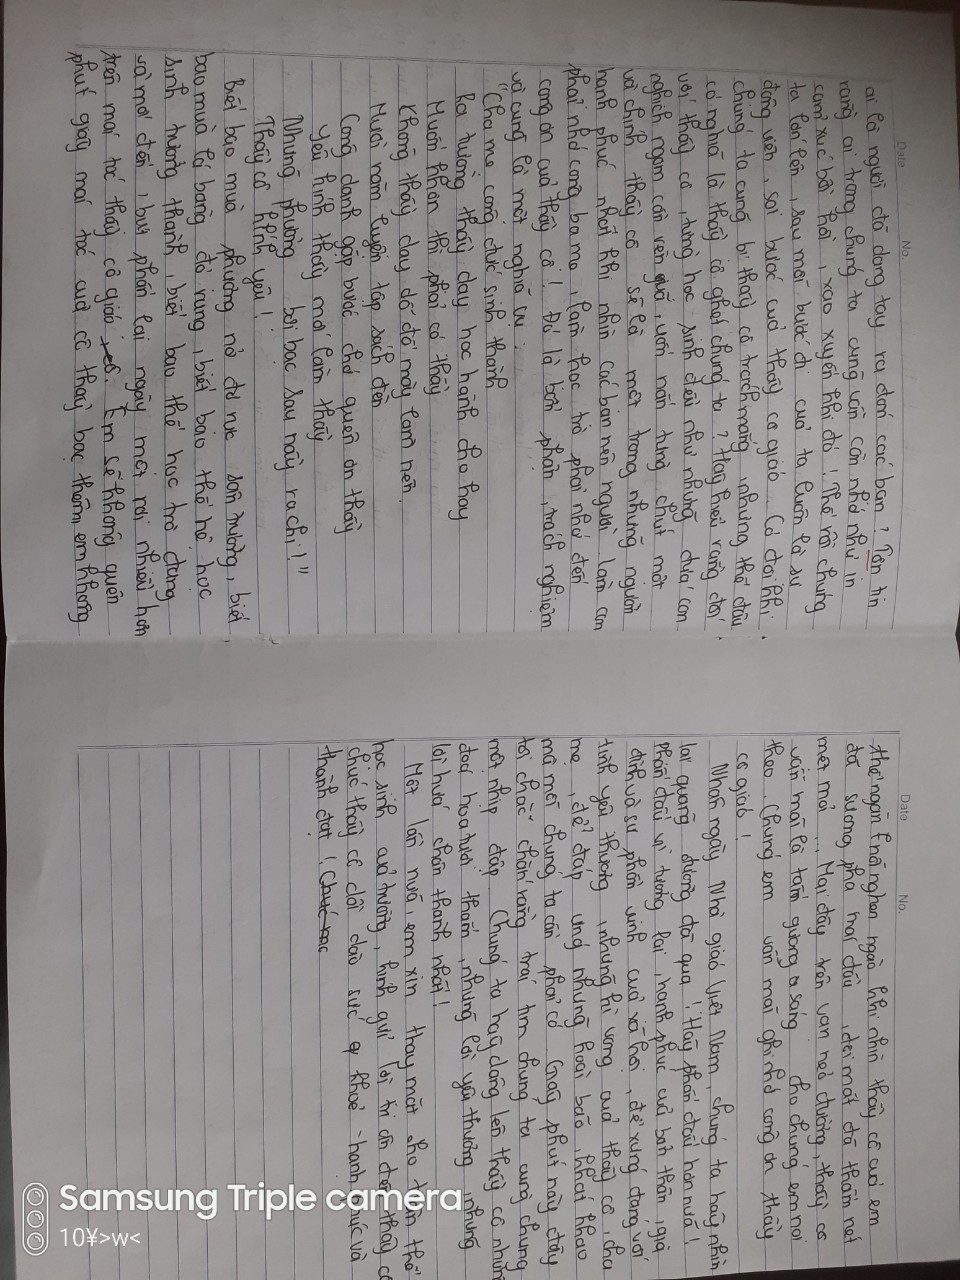 Date No.
ai là người đã dang tay ra đón các bạn? Tôn tin
rằng ai trong chúng ta cũng vẫn còn nhớ như in
cảm xúc bồi hồi, xao xuyến khi đó! Thế rồi chúng
ta lớn lên, sau mỗi bước đi của ta luôn là sự
động viên, soi bước của thầy cô giáo. Có đôi khi
chúng ta cũng bị thầy cô trách mắng nhưng thế đâu
có nghĩa là thầy cô ghét chúng ta? Hãy hiểu rằng đối
với thầy cô, từng học sinh đều như những đứa con
nghịch ngợm cần vẹn uốn nắn từng chút một
và chính thầy cô sẽ là một trong những người
hạnh phúc nhất khi nhìn các bạn nên người. Làm con
phải nhớ công ba mẹ, làm học trò phải nhớ đến
công ơn của thầy cô! Đó là bổn phận, trách nghiệm
và cũng là một nghĩa cử.
"Cha mẹ công đức sinh thành
Ra trường thầy dạy học hành cho hay
Muốn khôn thì phải có thầy
Không thầy dạy dỗ đố mày làm nên.
Mười năm luyện tập sách đèn
Công danh gặp bước chớ quên ơn thầy
Yêu kính thầy mới làm thầy
Những phường bội bạc sau này ra chi!"
Thầy cô kính yêu!
Biết bao mùa phượng nở đỏ rực sân trường, biết
bao mùa lá bàng đỏ rụng, biết bao thế hệ học
sinh trưởng thành, biết bao thế học trò đang
và mới đến, bụi phấn lại ngày một rơi nhiều hơn
trên mái tóc thầy cô giáo. Em sẽ không quên
phút giây mái tóc của cô thầy bạc thêm, em không
Date No.
thể ngăn nỗi nghẹn ngào khi nhìn thầy cô của em
đã sương pha mái đầu, đôi mắt đã thâm nét
mệt mỏi... Mai đây trên vạn nẻo đường, thầy cô
vẫn mãi là tấm gương sáng cho chúng em noi
theo. Chúng em vẫn mãi ghi nhớ công ơn thầy
cô giáo!
Nhân ngày Nhà giáo Việt Nam, chúng ta hãy nhìn
lại quãng đường đã qua! Hãy phấn đấu hơn nữa!
Phấn đấu vì tương lai, hạnh phúc của bản thân, gia
đình và sự phồn vinh của xã hội, để xứng đáng với
tình yêu thương, những kì vọng của thầy cô, cha
mẹ, để đáp ứng những hoài bão, khát khao
mà mỗi chúng ta cần phải có. Giây phút này đây
tôi chắc chắn rằng trái tim chúng ta cùng chung
một nhịp đập. Chúng ta hãy dâng lên thầy cô những
đoá hoa tươi thắm, những lời yêu thương, những
lời hứa chân thành nhất!
Một lần nữa, em xin thay mặt cho toàn thể
học sinh của trường, kính gửi lời tri ân đến thầy cô
chúc thầy cô dồi dào sức khoẻ - hạnh phúc và
thành đạt!
Samsung Triple camera
10¥>w<